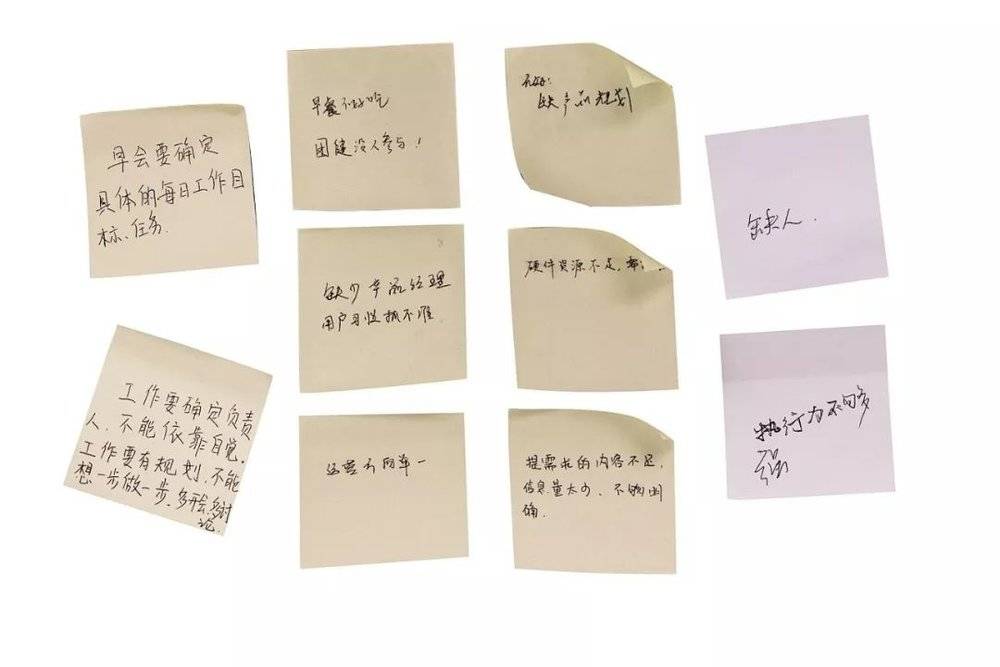 早会要确定
具体的每日工作目
标、任务.
工作要确定负责
人，不能依靠自觉.
工作要有规划，不能
想一步做一步，多开会多讨
论.
早餐不好吃
团建没人参与！
缺少 经理
用户习性抓不准
运营方向单一
不好：
缺产品规划
硬件资源不足，
提需求的内容不足，
信息量太少、不够明
确.
缺人.
执行力不够
强